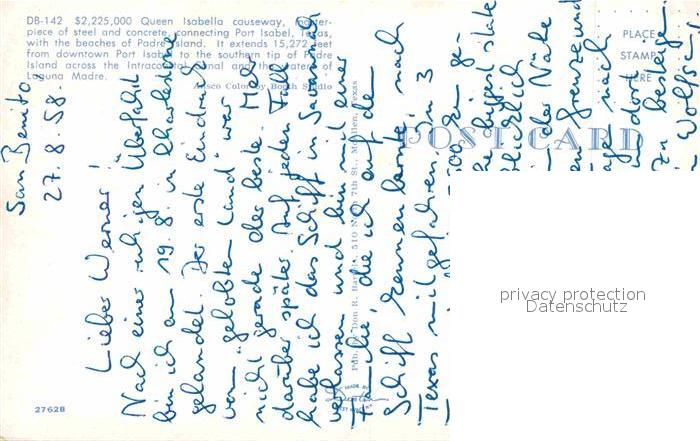 DB-142 $2,225,000 Queen Isabella causeway, master-
piece of steel and concrete, connecting Port Isabel, Texas,
with the beaches of Padre Island. It extends 15,272 feet
from downtown Port Isabel to the southern tip of Padre
Island across the Intracoastal Canal and the waters of
Laguna Madre.
Ansco Color by Booth Studio
PLACE
STAMP
HERE
POST CARD
Pub. by Don R. Bartels, 510 North 7th St., McAllen, Texas
27628
San Benito,
27.8.58.
Lieber Werner!
Nach einer ruhigen Überfahrt
bin ich am 19.8. in Charlestone
gelandet. Der erste Eindruck
vom "gelobten Land" war
nicht gerade der beste. Mehr
darüber später. Auf jeden Fall
habe ich das Schiff in Savannah
verlassen und bin mit einer
Familie, die ich auf dem
Schiff kennen lernte, nach
Texas mitgefahren. In 3
500 ge-
biggest state
der Nähe
grenze und
nach
dort
Wolfg.
privacy protection
Datenschutz